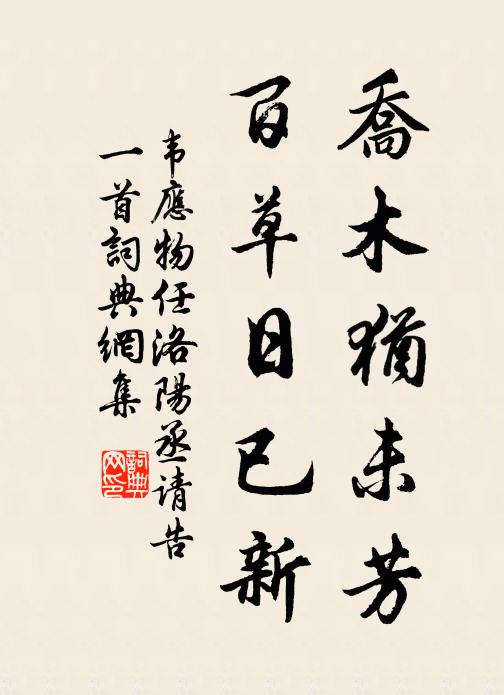 喬木猶未芳
百草日已新
韦應物任洛陽丞请告
一首詞典網集
詞典
网印